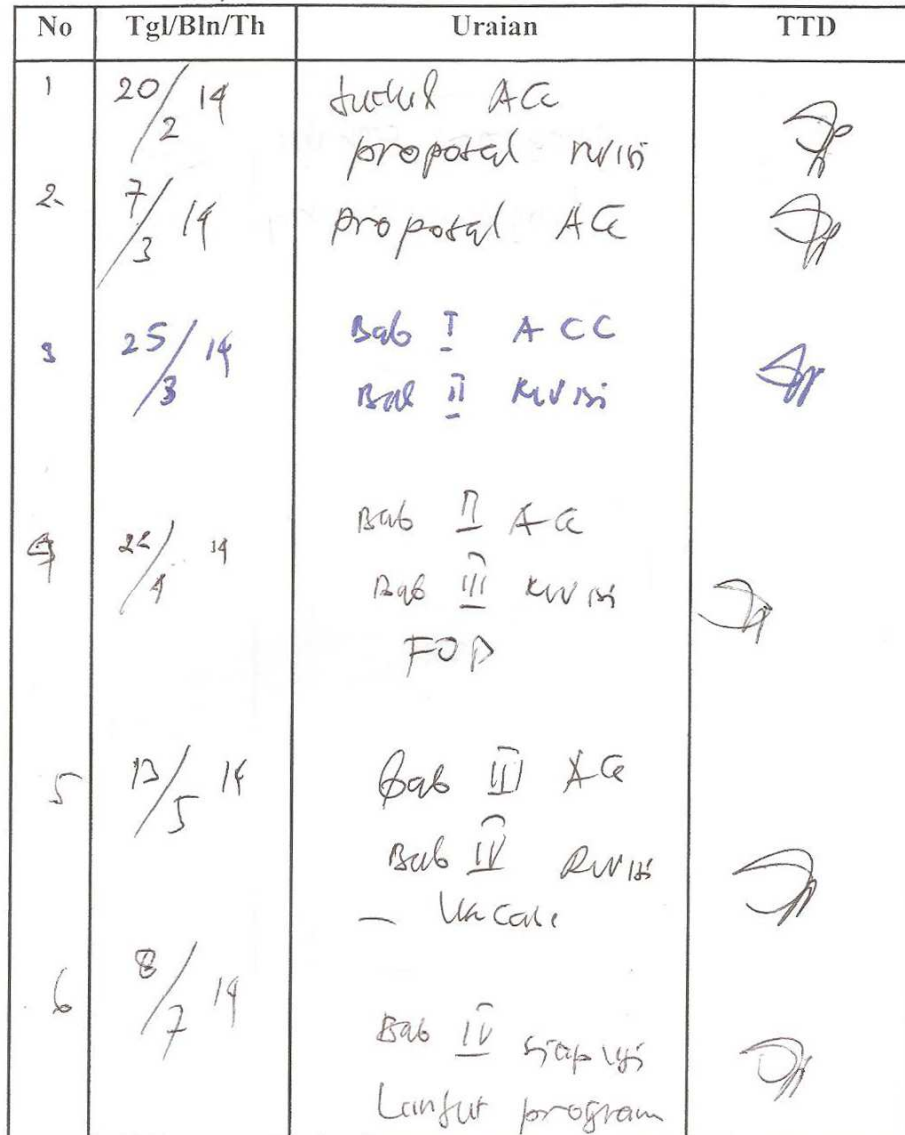 No Tgl/Bln/Th Uraian TTD
1 20/2 14 Judul ACC
proposal revisi
2. 7/3 14 proposal ACC
3 25/3 14 Bab I ACC
Bab II Revisi
4 22/4 14 Bab II ACC
Bab III Revisi
FOD
5 13/5 14 Bab III ACC
Bab IV Revisi
– Use Case
6 8/7 14
Bab IV siap uji
Lanjut program